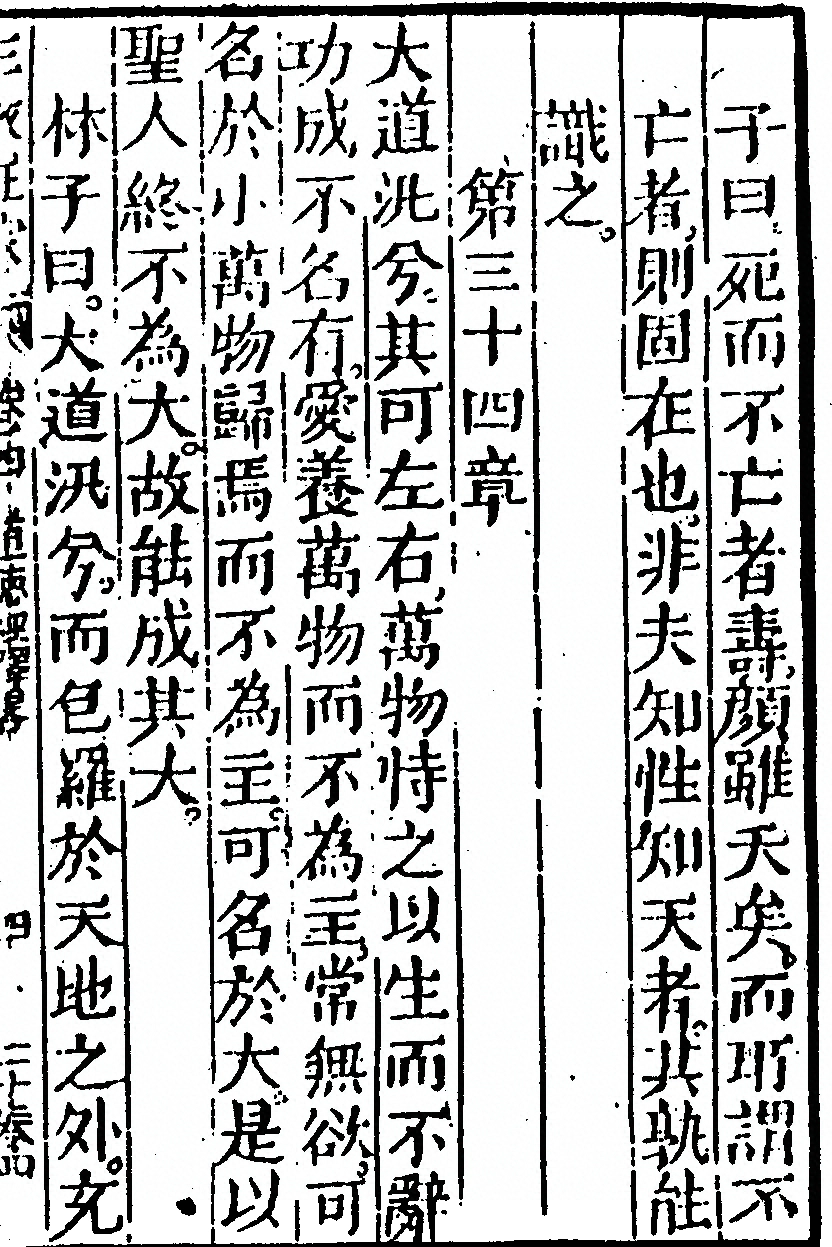 子曰死而不亡者壽顏雖夭矣而所謂不
亡者則固在也非夫知性知天者其孰能
識之。
第三十四章
大道汎兮其可左右萬物恃之以生而不辭
功成不名有愛養萬物而不為主常無欲可
名於小萬物歸焉而不為主可名於大是以
聖人終不為大故能成其大
林子曰。大道汎兮。而包羅於天地之外。充
道德經釋畧